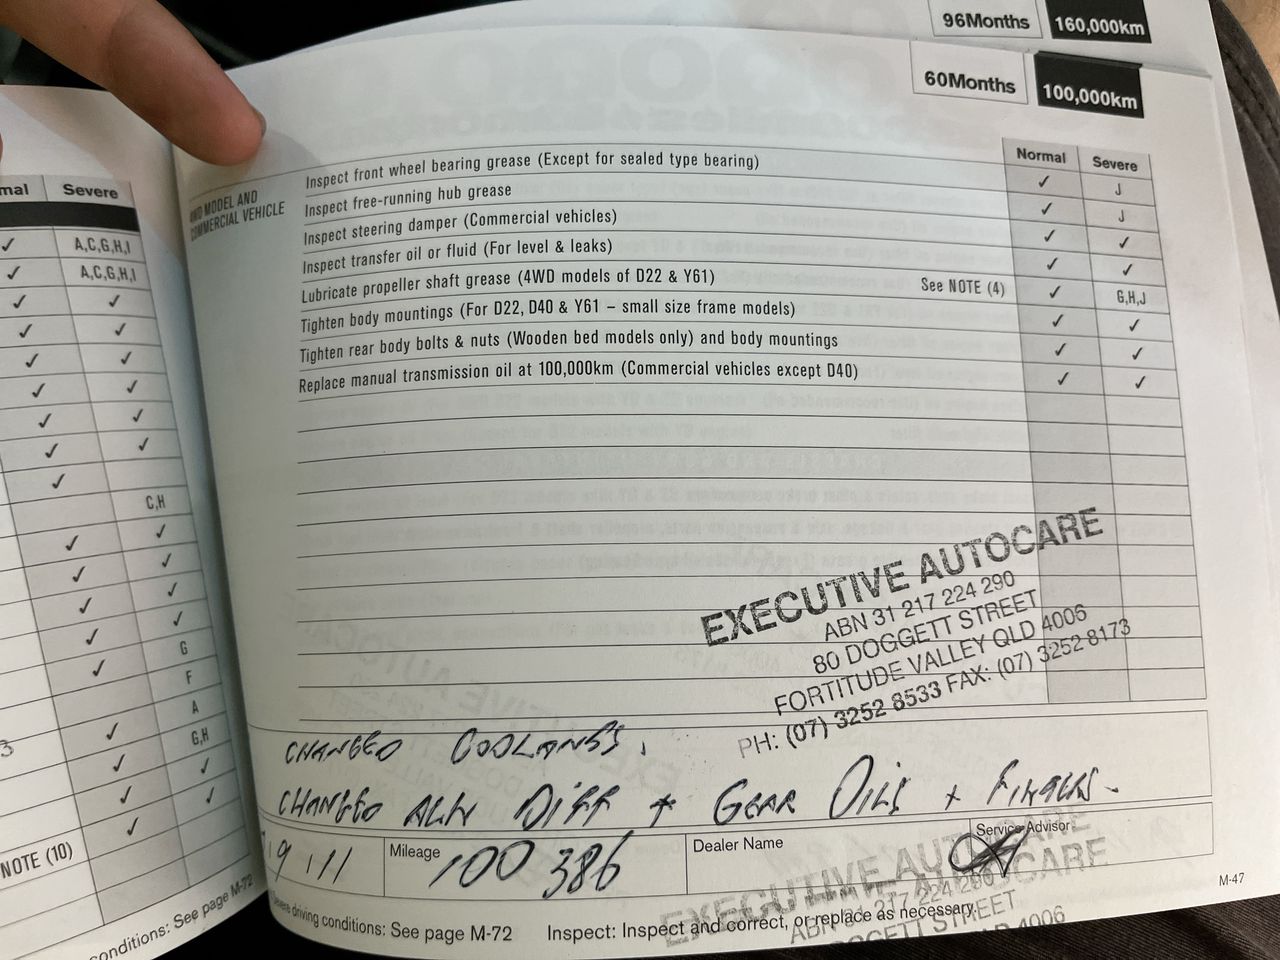 96Months 160,000km
60Months 100,000km
Normal Severe
4WD MODEL AND
COMMERCIAL VEHICLE
Inspect front wheel bearing grease (Except for sealed type bearing) ✓ J
Inspect free-running hub grease ✓ J
Inspect steering damper (Commercial vehicles) ✓ ✓
Inspect transfer oil or fluid (For level & leaks) ✓ ✓
Lubricate propeller shaft grease (4WD models of D22 & Y61) See NOTE (4) ✓ G,H,J
Tighten body mountings (For D22, D40 & Y61 – small size frame models) ✓ ✓
Tighten rear body bolts & nuts (Wooden bed models only) and body mountings ✓ ✓
Replace manual transmission oil at 100,000km (Commercial vehicles except D40) ✓ ✓
EXECUTIVE AUTOCARE
ABN 31 217 224 290
80 DOGGETT STREET
FORTITUDE VALLEY QLD 4006
PH: (07) 3252 8533 FAX: (07) 3252 8173
CHANGED COOLANTS.
CHANGED ALL DIFF + GEAR OILS +
19 / 11
Mileage 100 386
Dealer Name
Service Advisor
EXECUTIVE AUTOCARE
severe driving conditions: See page M-72 Inspect: Inspect and correct, or replace as necessary.
M-47
mal Severe
✓ A,C,G,H,I
✓ A,C,G,H,I
✓ ✓
✓ ✓
✓ ✓
✓ ✓
✓ ✓
✓ ✓
✓
C,H
✓ ✓
✓ ✓
✓ ✓
✓ ✓
✓ G
F
A
✓ G,H
✓ ✓
✓ ✓
✓
NOTE (10)
conditions: See page M-72